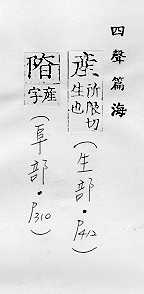 四聲篇海
産 所限切生也 (生部·P412)
產字 (阜部·P310)